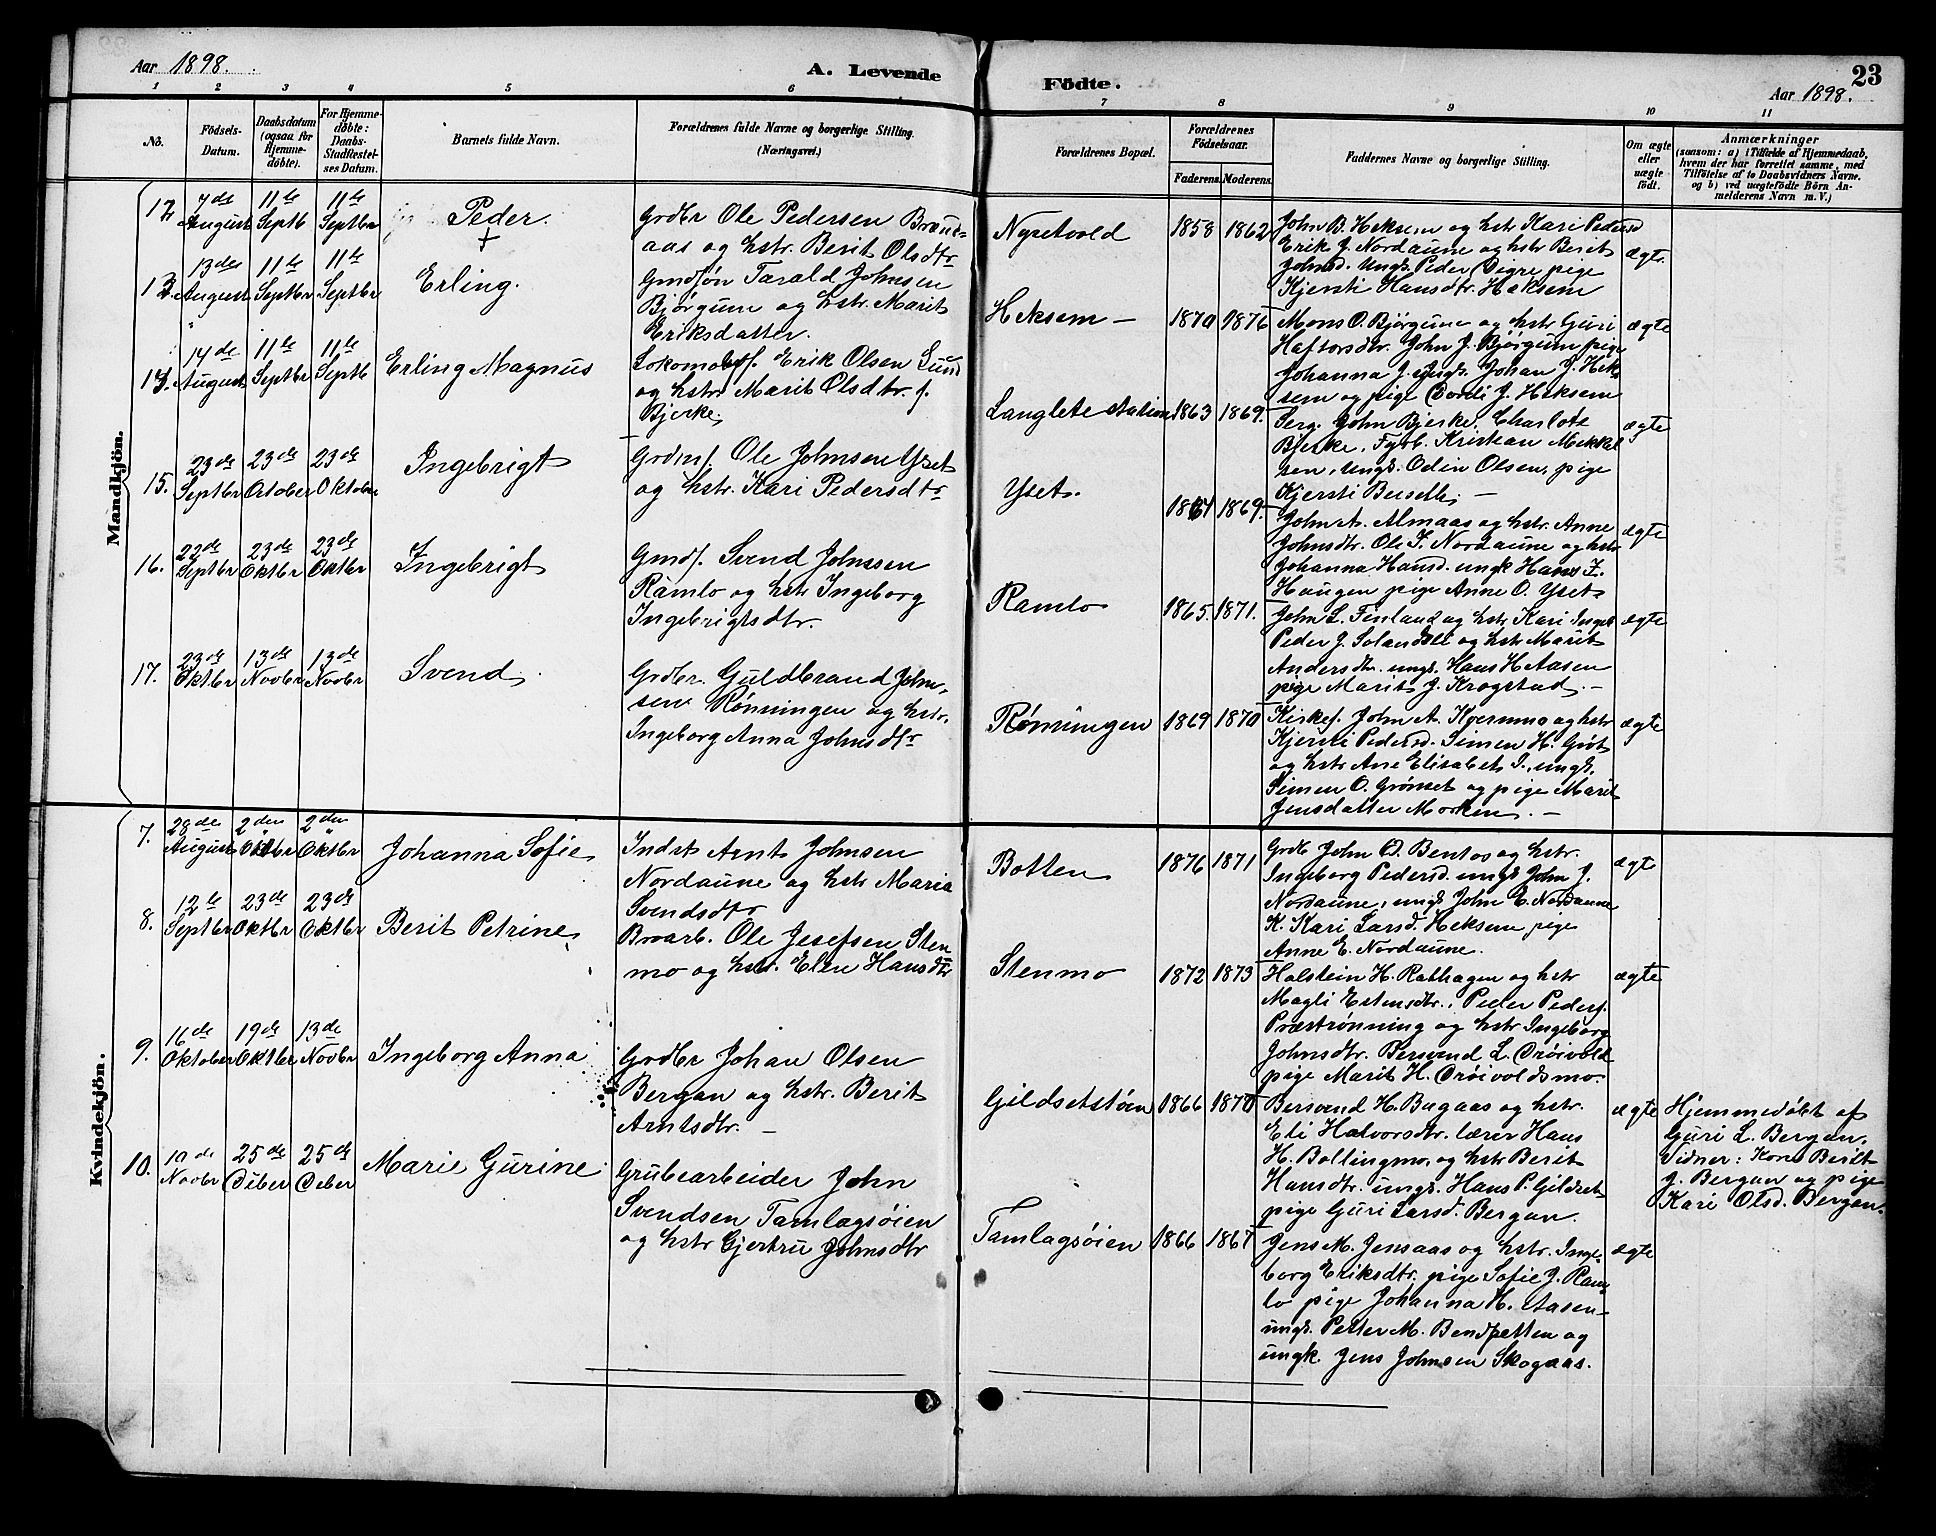 Aar 1898.
A. Levende
Födte.
23
Aar 1898.
1 2 3 4 5 6 7 8 9 10 11
No.
Födsels-
Datum.
Daabsdatum
(ogsaa for
Hjemme-
döbte).
For Hjemme-
döbte:
Daabs-
Stadfæstel-
ses Datum.
Barnets fulde Navn.
Forældrenes fulde Navne og borgerlige Stilling.
(Næringsvei.)
Forældrenes Bopæl.
Forældrenes
Födselsaar.
Faderens. Moderens.
Faddernes Navne og borgerlige Stilling.
Om ægte
eller
uægte
födt.
Anmærkninger
(saasom: a) i Tilfælde af Hjemmedaab,
hvem der har forrettet samme, med
Tilföielse af to Daabsvidners Navne.
og b) ved uægtefödte Börn An-
melderens Navn m. V.)
Mandkjön.
12. 7de August
11te Septb
11te Septbr
Peder.
+
Grdbr Ole Pedersen
aas og hstr. Berit Olsdtr
Nyretvold
1858 1862
John B. Heksem og hstr Kari Pedersd
Erik J. Nordaune og hstr Berit
Johnsd. Ungk. Peder Digre pige
Kjersti Hansdtr. Heksem
ægte
13. 13de August
11te Septbr
11te Septbr
Erling.
Tarald Johnsen
Bjørgum og hstr. Marit
Eriksdatter.
Heksem –
1870 1876
Mons O. Bjørgum og hstr Guri
Haftorsdtr. John J. Bjørgum pige
Johanna J. Ungk. Johan J. Hek
sem og pige Dordi J. Heksem
ægte
14. 14de August
11te Septbr
11te Septb
Erling Magnus
Erik Olsen Lund
og hstr. Marit Olsdtr. f.
Bjerke.
Langlete station
1863 1869.
Serg. John Bjerke, Charlote
Bjerke, Fyrb. Kristian Mikkel
sen, ungk. Odin Olsen, pige
Kjersti –
ægte
15. 23de Septbr
23de October
23de Oktober
Ingebrigt
Ole Johnsen Yset
og hstr. Kari Pedersdtr
Yset.
1864 1869.
John A. Almaas og hstr. Anne
Johnsdtr. Ole S. Nordaune og hstr
Johanna Hansd. ungk Hans
Haugen pige Anne O. Yset
ægte
16. 22de Septbr
23de Oktbr
23de Oktbr
Ingebrigt
Gmdf. Svend Johnssen
Ramlo og hstr Ingeborg
Ingebrigtsdtr.
Ramlo
1865. 1871.
John L. Finland og hstr Kari Ingeb
Peder J. og hstr Marit
Andersdtr. ungk. Hans H. Aasen
pige Marit J. Krogstad. –
ægte
17. 23de Oktbr
13de Novbr
13de Novbr
Svend
Grdbr. Guldbrand John-
sen Rønningen og hstr.
Ingeborg Anna Johnsdtr
Rønningen
1869 1870
Kirkes. John A. Kvernmo og hstr
Kjersti Pedersd. Simen H. Grøt
og hstr Ane Elisabet S. ungk.
Simen O. Grønset og pige Marit
Jensdatter Morken. –
ægte
Kvindekjön.
7. 28de August
2den Oktbr
2den Oktbr
Johanna Sofie
Indst Arnt Johnsen
Nordaune og hstr Maria
Svendsdtr
Botten
1876 1871
Grdb John O. Bentos og hstr.
Ingeborg Pedersd. ungk John J.
Nordaune, ungk John E. Nordaune
K. Kari Larsd. Heksem pige
Anne E. Nordaune.
ægt
8. 12te Septbr
23de Oktbr
23de Oktbr
Berit Petrine
Ole Josefsen Sten
mo og hstr. Elen Hansdtr
Stenmo
1872 1873
Halstein H. Rathagen og hstr
Magli Estensdtr. Peder Peders.
Præstrønning og hstr Ingeborg
Johnsdtr. Bersvend L. Drøivold
pige Marit H. Drøivoldsmo.
ægte
9. 16de Oktober
19de Oktbr
13de Novbr
Ingeborg Anna
Grdbr Johan Olsen
Bergan og hstr. Berit
Arntsdtr. –
Gildsetstøen
1866 1870
Bersvend H. Bugaas og hstr.
Eli Halvorsdtr. lærer Hans
H. Bollingmo, og hstr Berit
Hansdtr. ungk. Hans P. Gildset
pige Guri Larsd. Bergan.
ægte
Hjemmedøbt af
Guri L. Bergan.
Vidner: Kone Berit
J. Bergan og pige
Kari Olsd. Bergan.
10. 10de Novbr
25de Dcber
25de Dcber
Marie Gurine
Grubearbeider John
Svendsen Tamlagsøien
og hstr Gjertru Johnsdtr
Tamlagsøien
1866 1867
Jens M. Jensaas og hstr. Inge-
borg Eriksdtr. pige Sofie J. Ram-
lo pige Johanna H. Aasen
ungk. Petter M. og
ungk. Jens Johnsen Skogaas.
ægte